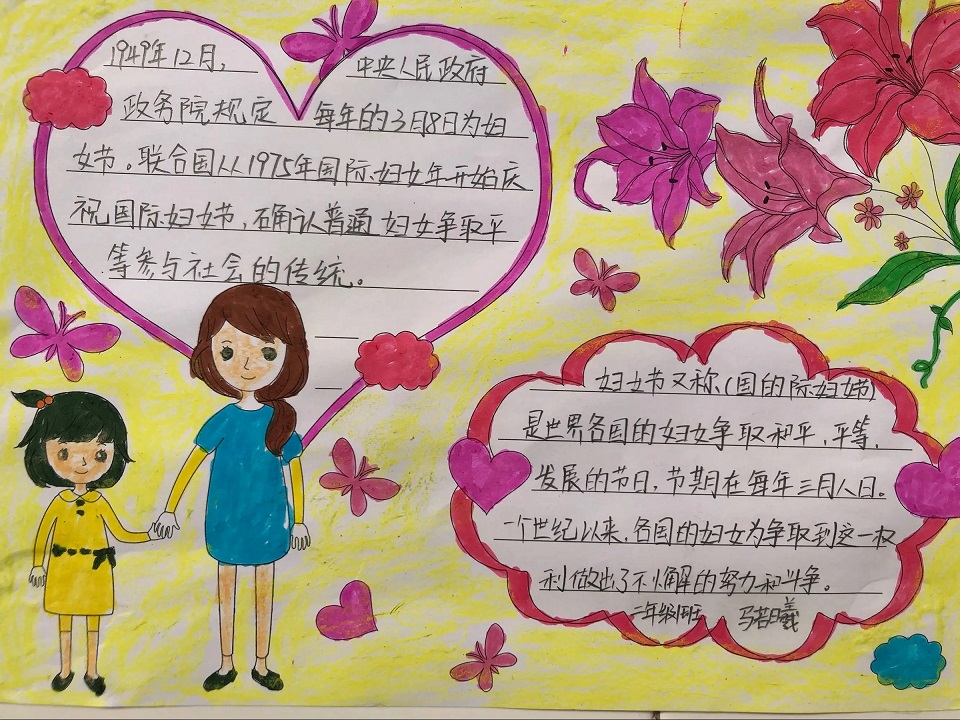 1949年12月, 中央人民政府
政务院规定 每年的3月8日为妇
女节。联合国从1975年国际妇女年开始庆
祝国际妇女节,确认普通妇女争取平
等参与社会的传统。
妇女节又称(国的际妇女节)
是世界各国的妇女争取和平、平等、
发展的节日,节期在每年三月八日。
一个世纪以来,各国的妇女为争取到这一权
利做出了不懈的努力和斗争。
二年级1班 马若曦